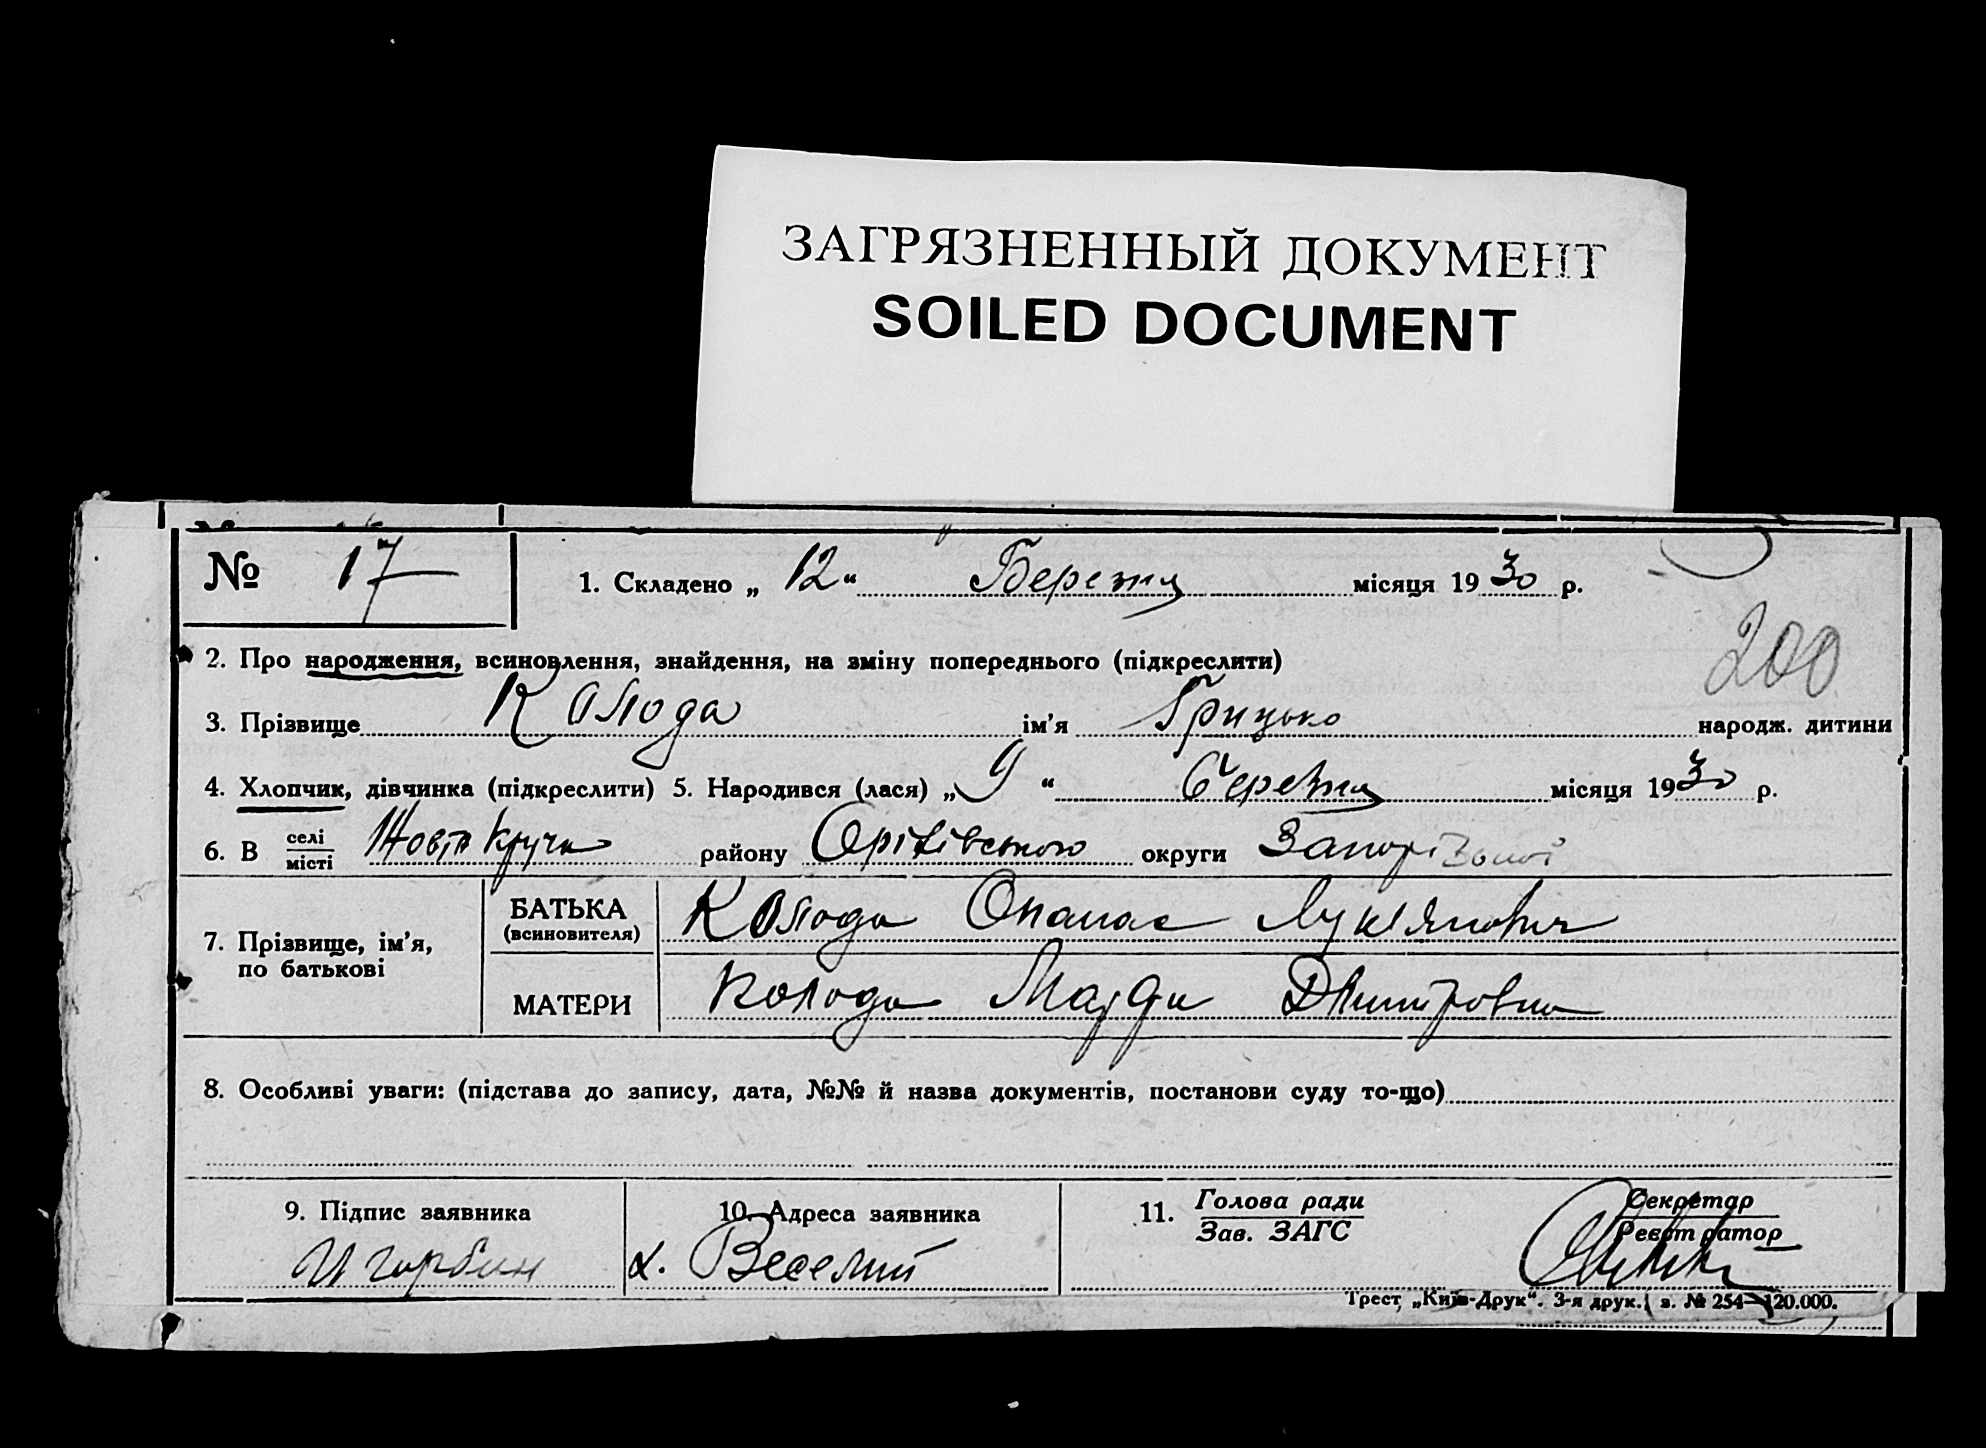 ЗАГРЯЗНЕННЫЙ ДОКУМЕНТ
SOILED DOCUMENT
№ 17
1. Складено „ 12 “ Березня місяця 1930 р.
200
2. Про народження, всиновлення, знайдення, на зміну попереднього (підкреслити)
3. Прізвище Колода ім'я Грицько народж. дитини
4. Хлопчик, дівчинка (підкреслити) 5. Народився (лася) „ 9 “ березня місяця 1930 р.
6. В селі/місті Жовта Круча району Оріхівського округи Запорізької
7. Прізвище, ім'я, по батькові
БАТЬКА (всиновителя) Колода Опанас Лукіянович
МАТЕРИ Колода Марфа Дмитровна
8. Особливі уваги: (підстава до запису, дата, №№ й назва документів, постанови суду то-що)
9. Підпис заявника
10. Адреса заявника
х. Веселий
11. Голова ради
Зав. ЗАГС
Секретар
Реєстратор
Трест „Київ-Друк“. 3-я друк. з. № 254—120.000.